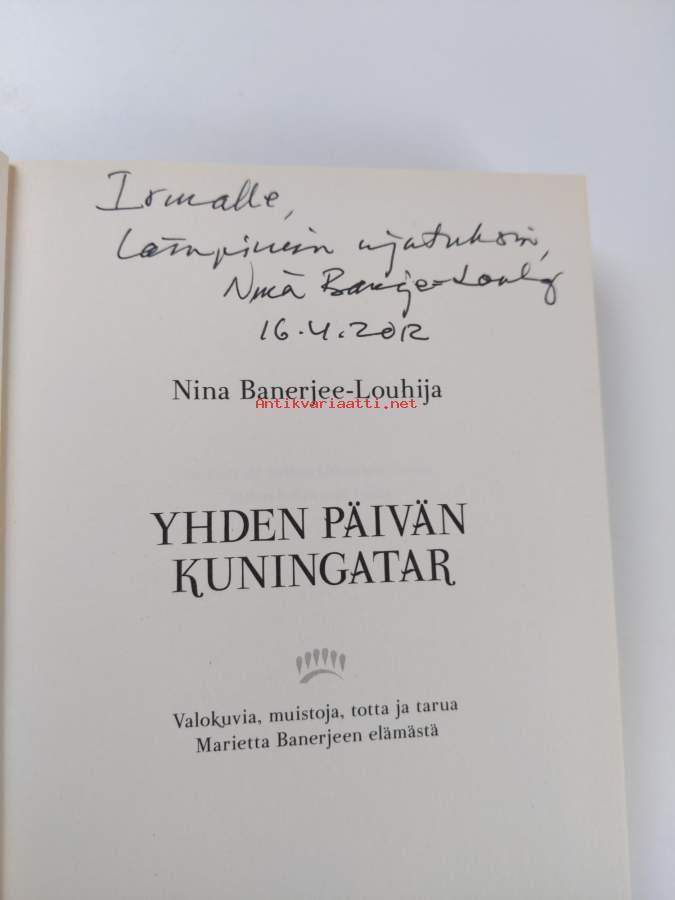 Irmalle,
Lämpimin ajatuksin,
Nina Banerjee-Louhija
16.4.2012
Nina Banerjee-Louhija
Antikvariaatti.net
YHDEN PÄIVÄN
KUNINGATAR
Valokuvia, muistoja, totta ja tarua
Marietta Banerjeen elämästä